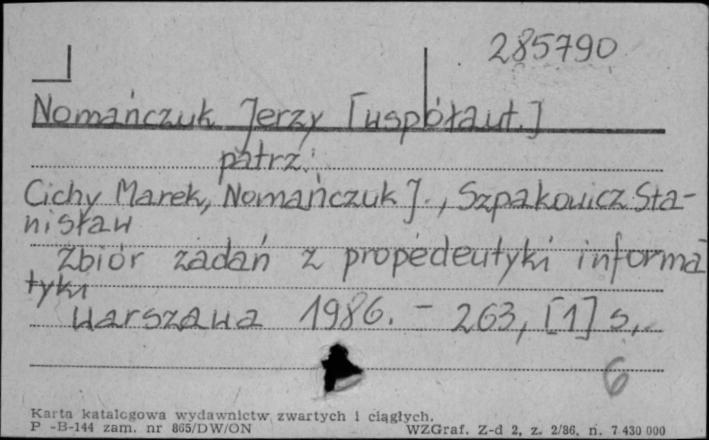 285790
Nomańczuk Jerzy [współaut.]
patrz:
Cichy Marek, Nomańczuk J., Szpakowicz Sta-
nisław
Zbiór zadań z propedeutyki informa
tyki
Warszawa 1986. - 263, [1] s.
6
Karta katalogowa wydawnictw zwartych i ciągłych.
P -B-144 zam. nr 865/DW/ON WZGraf. Z-d 2, z. 2/86, n. 7 430 000